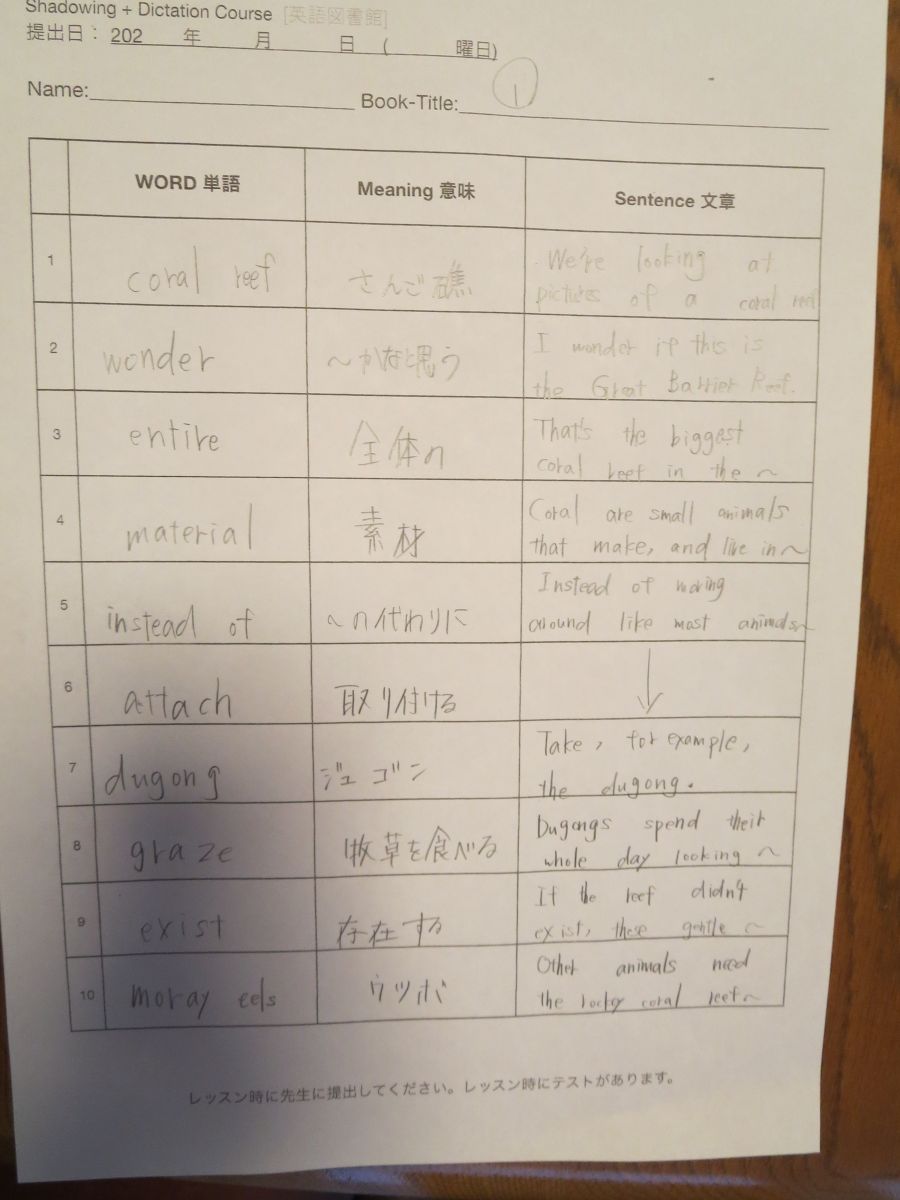 Shadowing + Dictation Course [英語図書館]
提出日： 202 年 月 日 ( 曜日)
Name: Book-Title: 1
WORD 単語 Meaning 意味 Sentence 文章
1 coral reef さんご礁 We're looking at
pictures of a coral reef
2 wonder 〜かなと思う I wonder if this is
the Great Barrier Reef.
3 entire 全体の That's the biggest
coral reef in the 〜
4 material 素材 Coral are small animals
that make, and live in〜
5 instead of 〜の代わりに Instead of moving
around like most animals〜
6 attach 取り付ける ↓
7 dugong ジュゴン Take, for example,
the dugong.
8 graze 牧草を食べる Dugongs spend their
whole day looking 〜
9 exist 存在する If the reef didn't
exist, these gentle 〜
10 moray eels ウツボ Other animals need
the rocky coral reef〜
レッスン時に先生に提出してください。レッスン時にテストがあります。